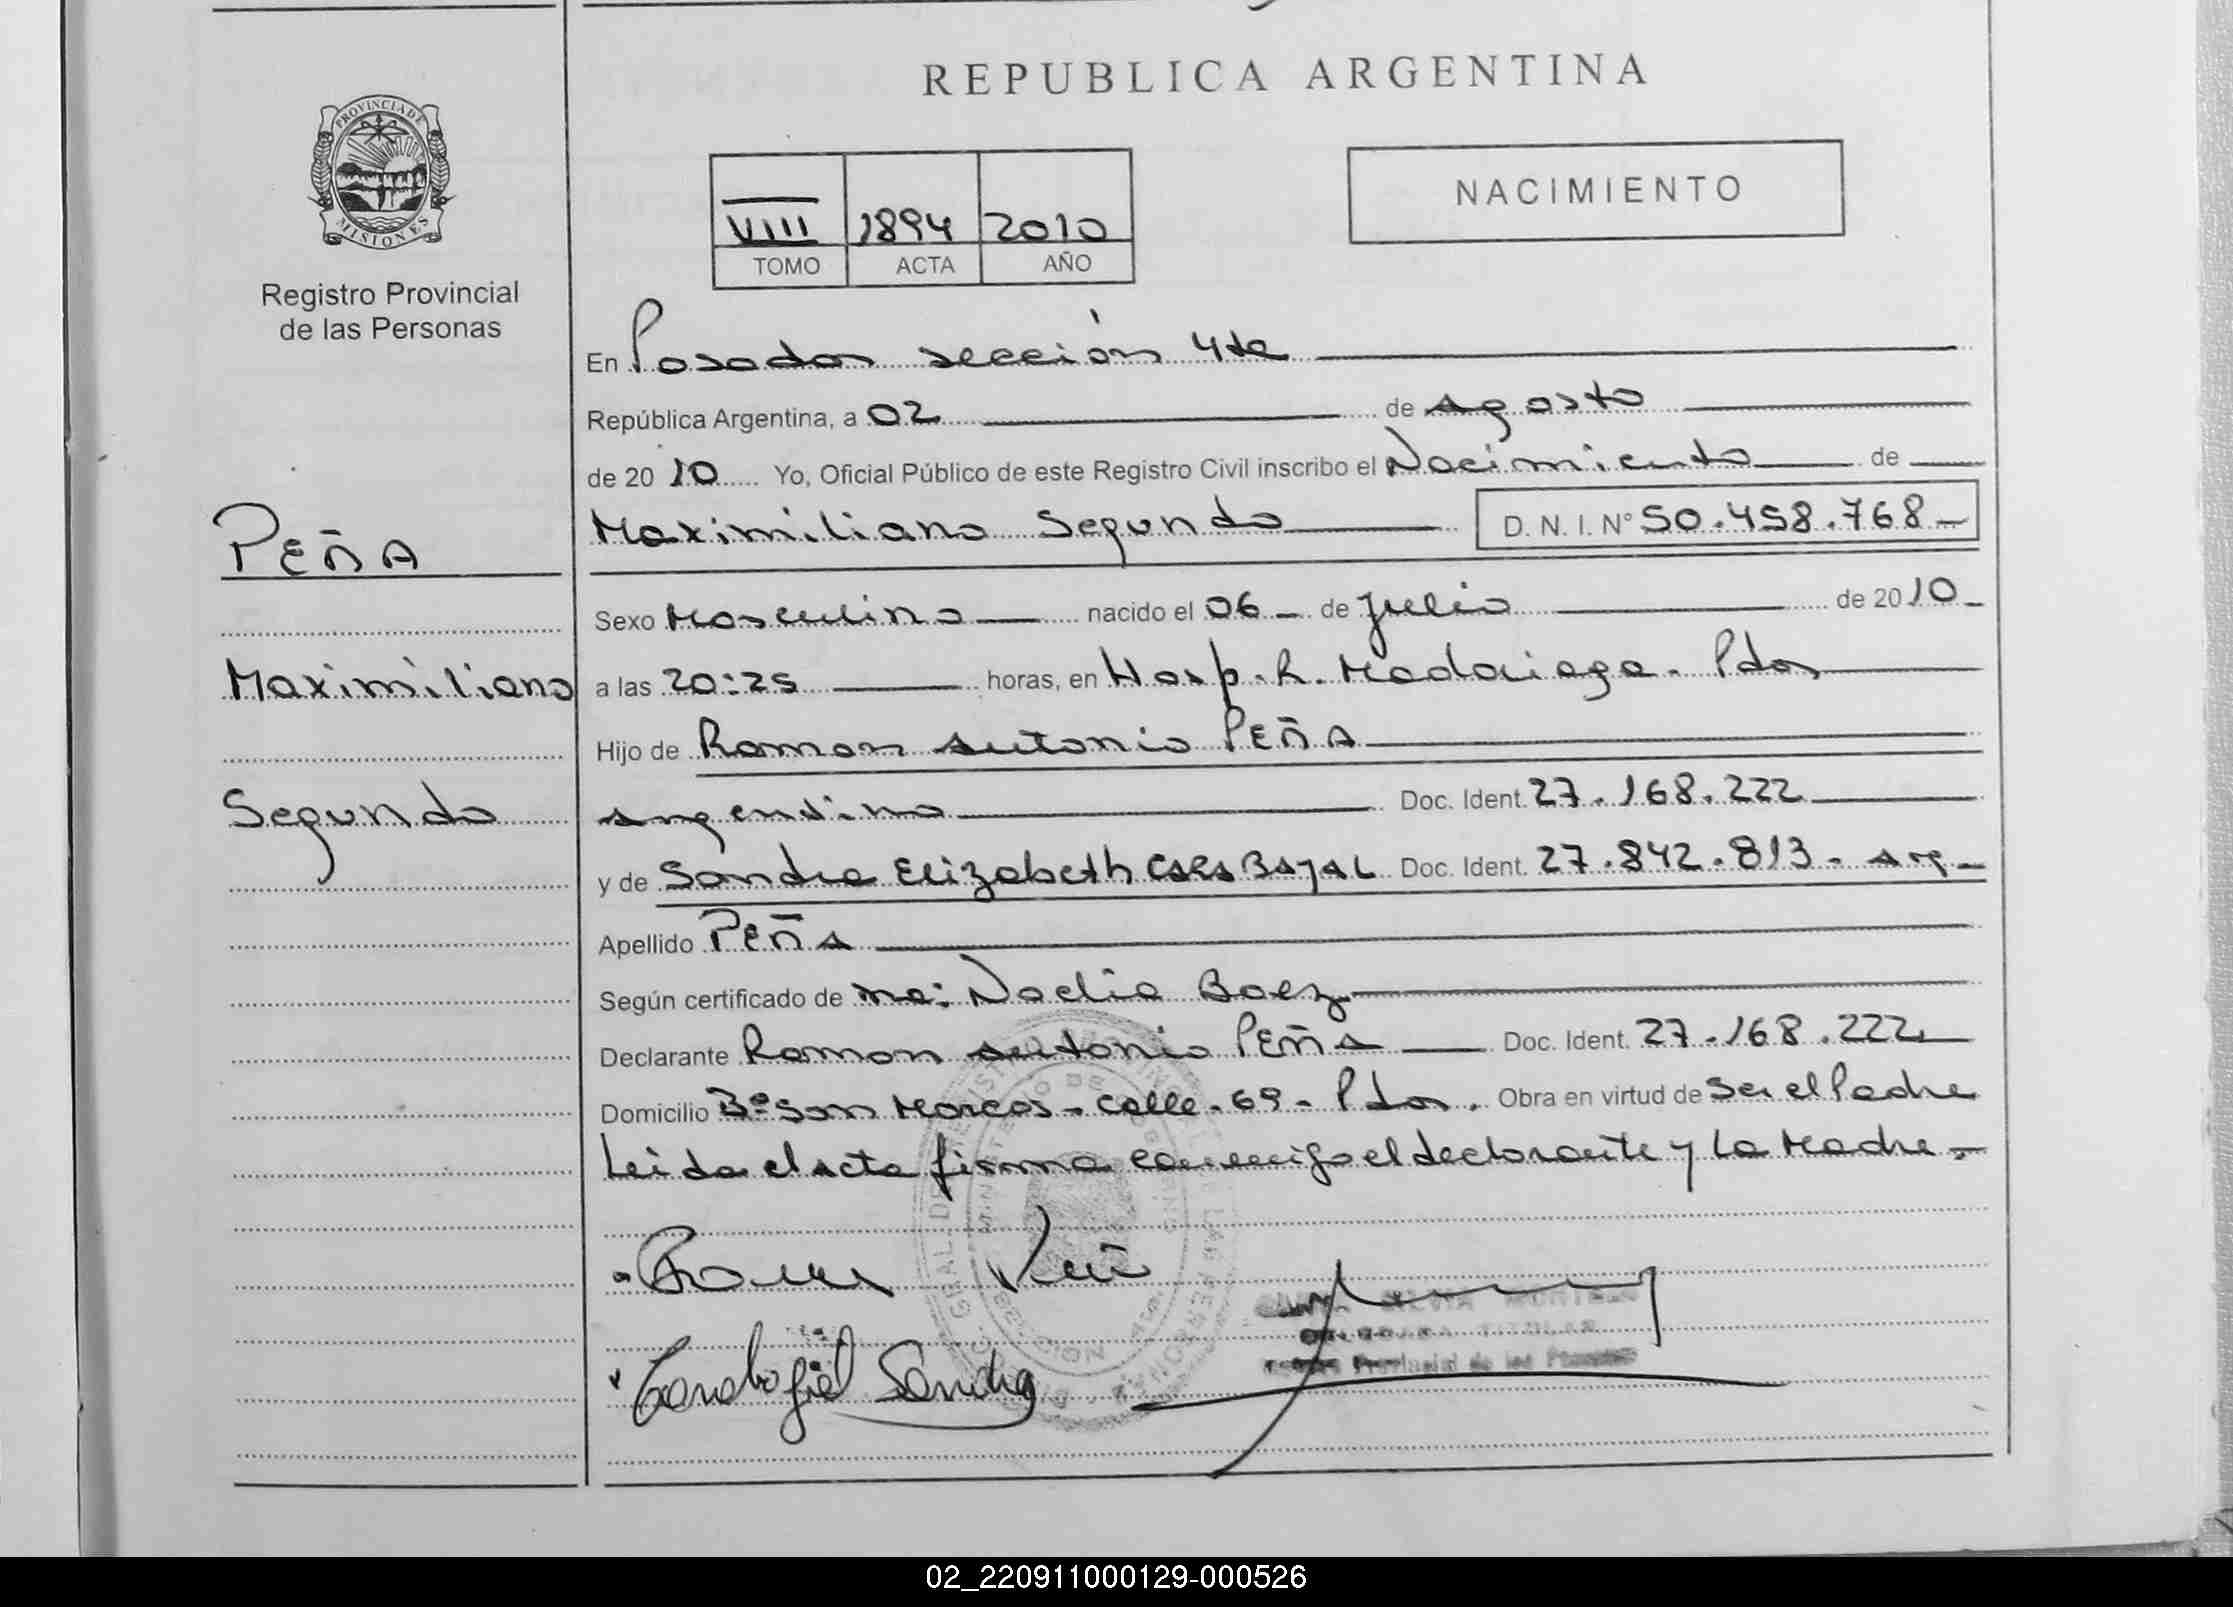 REPUBLICA ARGENTINA
PROVINCIA DE
MISIONES
Registro Provincial
de las Personas
NACIMIENTO
VIII 1894 2010
TOMO ACTA AÑO
En Posadas sección 4ta
República Argentina, a 02 de Agosto
de 2010 Yo, Oficial Público de este Registro Civil inscribo el Nacimiento de
Maximiliano Segundo D. N. I. N° 50.458.768
PEÑA
Maximiliano
Segundo
Sexo Masculino nacido el 06 de Julio de 2010
a las 20:25 horas, en Hosp. R. Madariaga. Pdas
Hijo de Ramon Antonio PEÑA
argentino Doc. Ident. 27.168.222
y de Sandra Elizabeth CARABAJAL Doc. Ident. 27.842.813 - arg
Apellido PEÑA
Según certificado de Noelia Baez
Declarante Ramon Antonio PEÑA Doc. Ident. 27.168.222
Domicilio B° San Marcos - Calle - 69 - Pdas. Obra en virtud de Ser el Padre
Leida el acta firma conmigo el declarante y la Madre
Sandra
Provincial de las
02_220911000129-000526